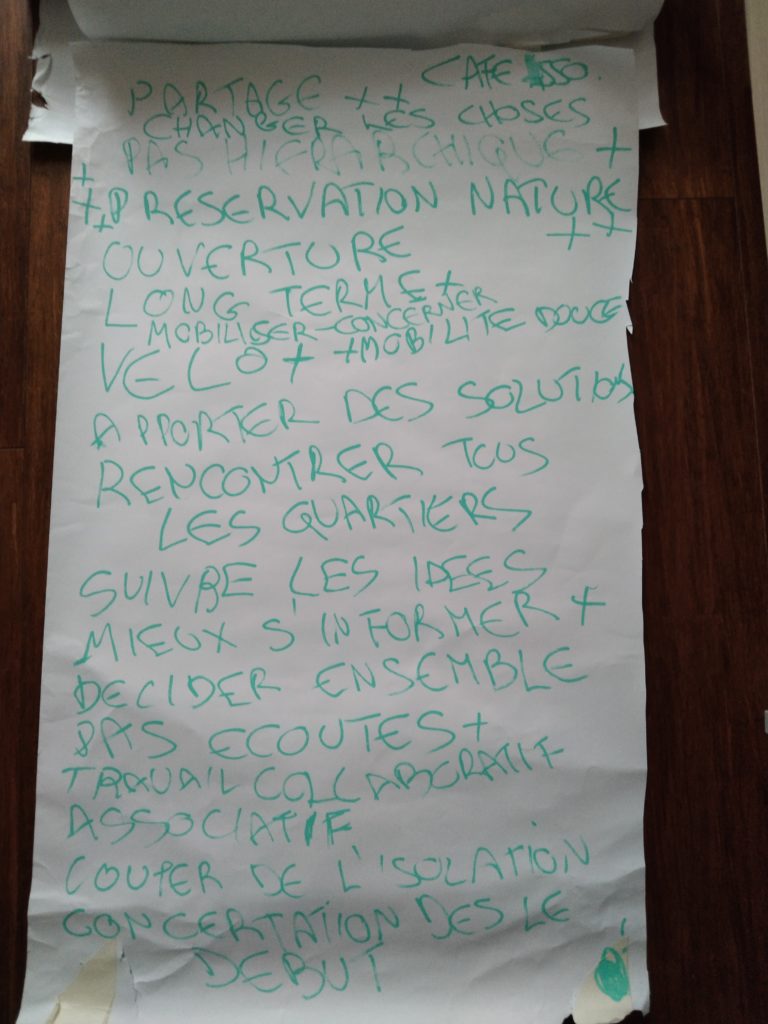 CAFE ASSO.
PARTAGE ++
CHANGER LES CHOSES
PAS HIERARCHIQUE +
+++ PRESERVATION NATURE ++
OUVERTURE
LONG TERME +
MOBILISER - CONCERNER
VELO + +MOBILITE DOUCE
APPORTER DES SOLUTIONS
RENCONTRER TOUS
LES QUARTIERS
SUIVRE LES IDEES
MIEUX S'INFORMER +
DECIDER ENSEMBLE
PAS ECOUTES +
TRAVAIL COLLABORATIF
ASSOCIATIF
COUPER DE L'ISOLATION
CONCERTATION DES LE
DEBUT